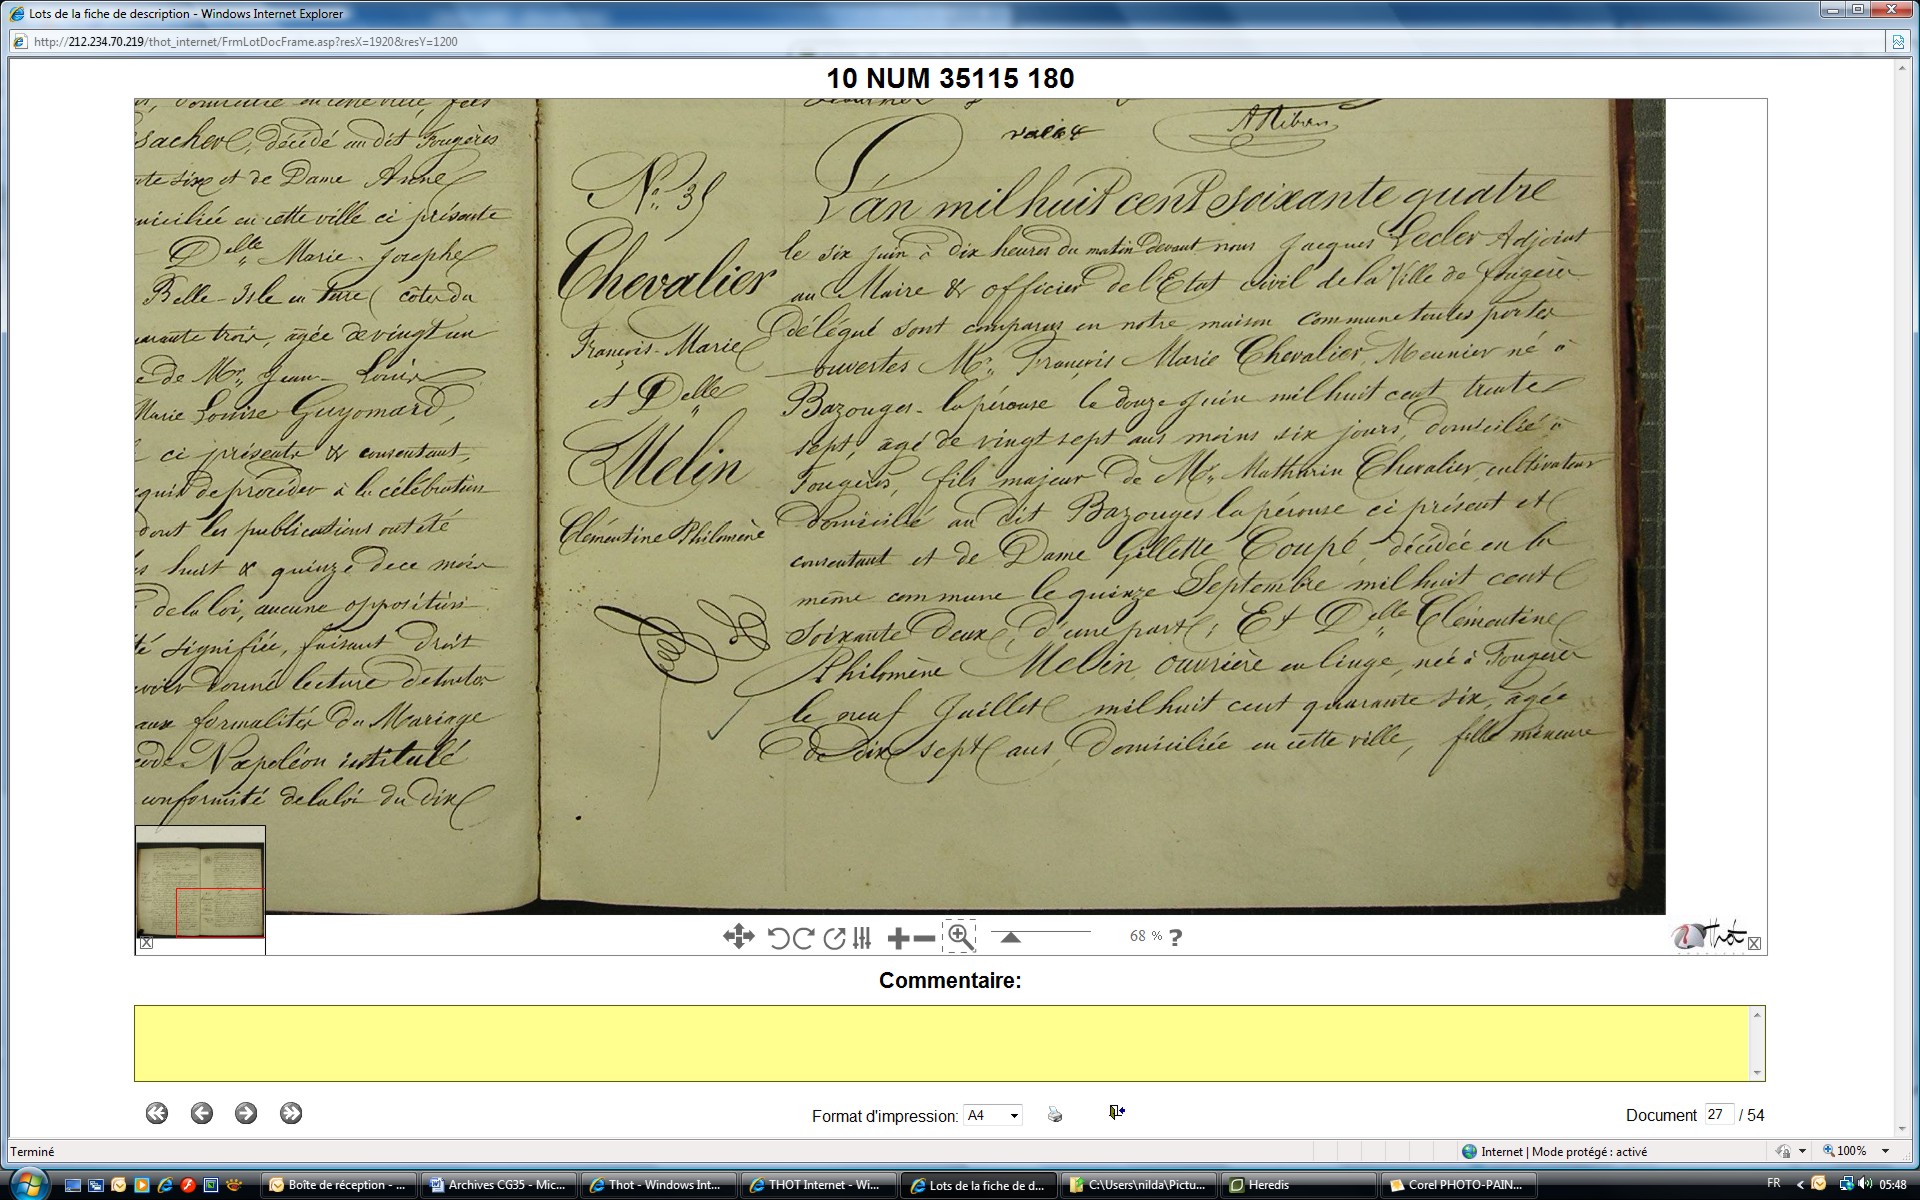 Lots de la fiche de description - Windows Internet Explorer
http://212.234.70.219/thot_internet/FrmLotDocFrame.asp?resX=1920&resY=1200
10 NUM 35115 180
sacher, décédé au dit Fougères
nte six et de Dame Anne
miciliée en cette ville ci présente
Delle Marie-Josephe
Belle-Isle en terre (côtes du
uarante trois, âgée de vingt un
e de Mr. Jean-Louis
Marie Louise Guyomard,
ci présents & consentant,
quis de procéder à la célébration
dont les publications ont été
s huit & quinze de ce mois
de la loi, aucune opposition
té signifiée, faisant droit
avoir donné lecture de toutes
aux formalités du Mariage
code Napoléon intitulé
conformité de la loi du dix
N° 35
Chevalier
François-Marie
et Delle
Melin
Clémentine Philomène
L'an mil huit cent soixante quatre
le six juin à dix heures du matin devant nous Jacques Lecler Adjoint
au Maire & officier de l'Etat civil de la Ville de fougères
délégué sont comparus en notre maison commune toutes portes
ouvertes Mr. François Marie Chevalier, Meunier né à
Bazouges-la pérouse le douze Juin mil huit cent trente
sept, âgé de vingt sept ans moins six jours, domicilié à
Fougères, fils majeur de Mr. Mathurin Chevalier, cultivateur
domicilié au dit Bazouges la pérouse ci présent et
consentant et de Dame Gillette Coupé, décédée en la
même commune le quinze Septembre mil huit cent
soixante deux, d'une part; Et Delle Clémentine
Philomène Melin ouvrière en linge, née à Fougères
le neuf Juillet mil huit cent quarante six, âgée
de dix sept ans, domiciliée en cette ville, fille mineure
68 % ?
Thot
Commentaire:
Format d'impression: A4
Document 27 / 54
Terminé
Internet | Mode protégé : activé
100%
Boîte de réception - ...
Archives CG35 - Mic...
Thot - Windows Int...
THOT Internet - Wi...
Lots de la fiche de d...
C:\Users\nilda\Pictu...
Heredis
Corel PHOTO-PAIN...
FR
05:48